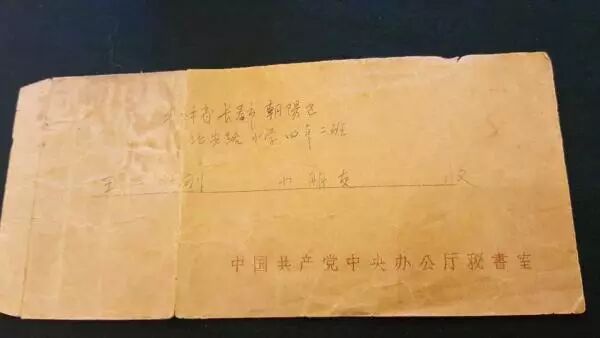 吉林省长春市朝陽区
北安路小学四年二班
王 刚 小朋友 收
中国共产党中央办公厅秘書室